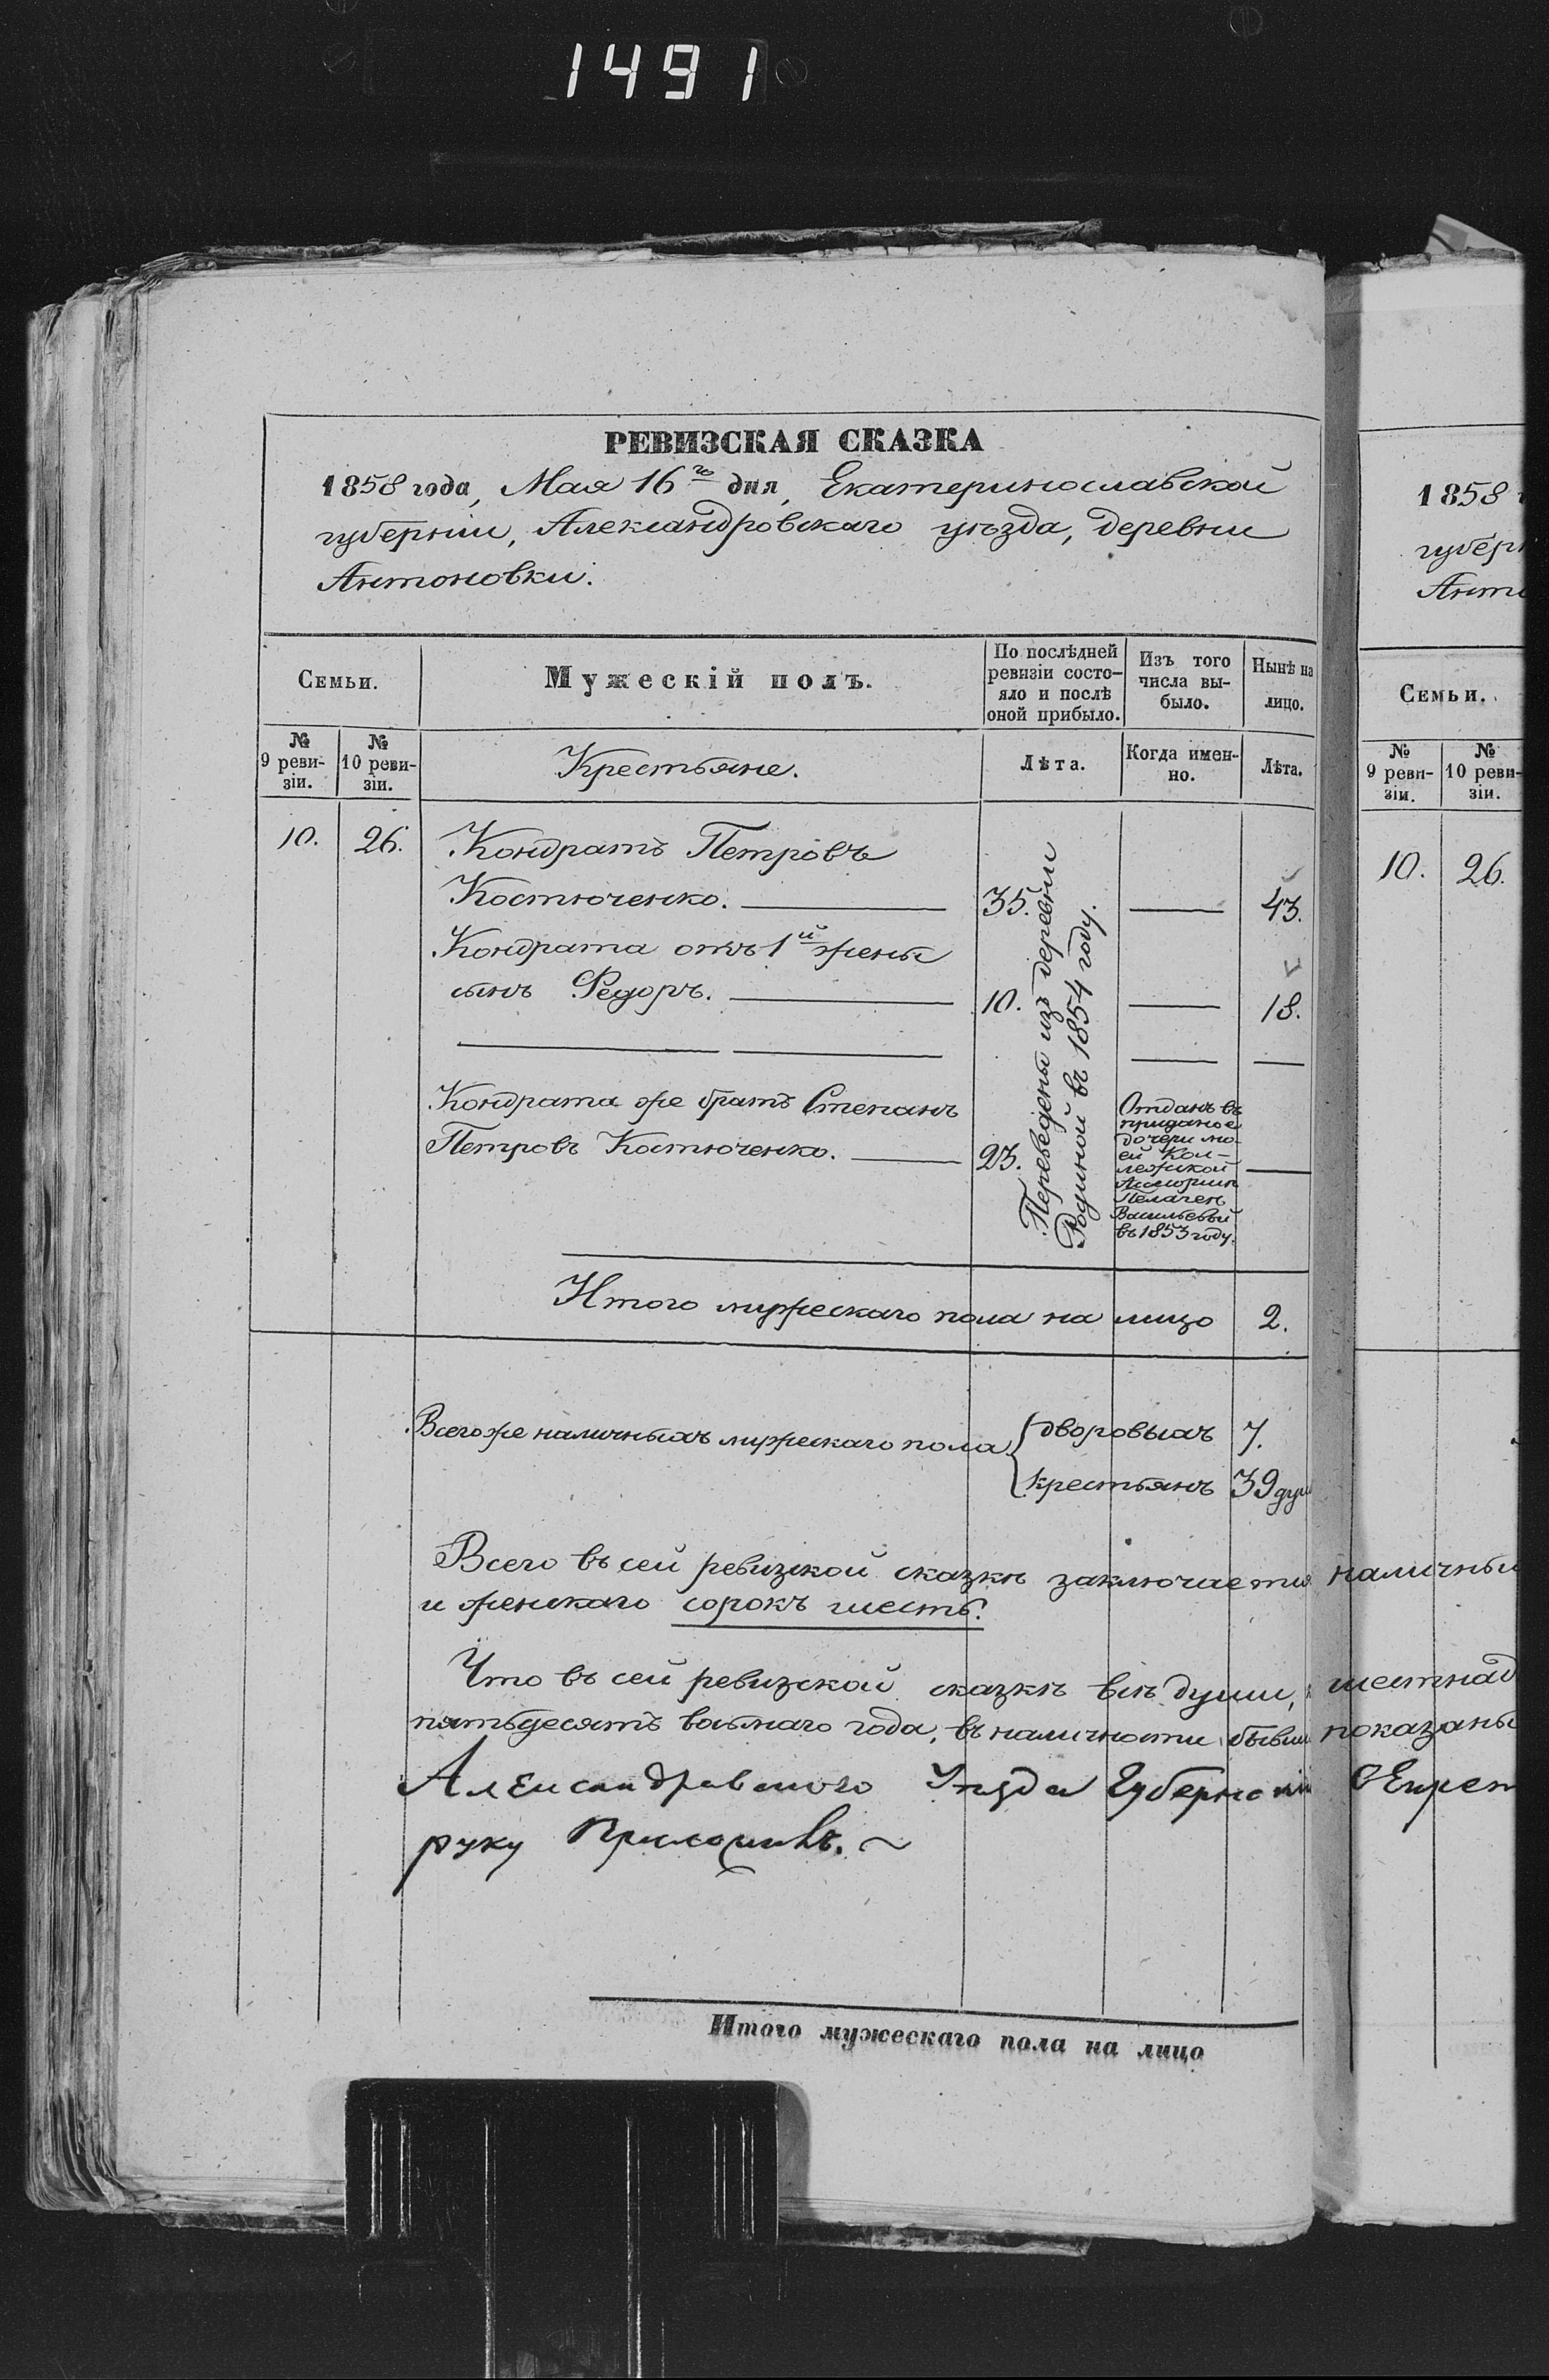 1491
РЕВИЗСКАЯ СКАЗКА
1858 года, Мая 16го дня, Екатеринославской
губерніи, Александровскаго уѣзда, деревни
Антоновки.
Семьи.
Мужескій полъ.
По послѣдней
ревизіи состо-
яло и послѣ
оной прибыло.
Изъ того
числа вы-
было.
Нынѣ на
лицо.
№
9 реви-
зіи.
№
10 реви-
зіи.
Крестьяне.
Лѣта.
Когда имен-
но.
Лѣта.
10. 26. Кондратъ Петровъ
Костюченко. 35. 43.
Кондрата отъ 1й жены
сынъ Федоръ. 10. 18.
Кондрата же братъ Степанъ
Петровъ Костюченко. 23.
Переведены изъ деревни
Родиной въ 1854 году.
Отданъ въ
приданое
дочери мо-
ей Кол-
лежской
Ассесоршѣ
Пелагеѣ
Васильевой
въ 1853 году.
Итого мужескаго пола на лицо 2.
Всего же наличныхъ мужескаго пола дворовыхъ 7.
крестьянъ 39 душ
Всего въ сей ревизской сказкѣ заключается
и женскаго сорокъ шесть.
Что въ сей ревизской сказкѣ всѣ души,
пятьдесятъ восьмаго года, въ наличности бывш
Александровского Уезда Губернски
руку Приложилъ.
Итого мужескаго пола на лицо
1858
губерн
Анто
Семьи.
№
9 реви-
зіи.
№
10 реви-
зіи.
10. 26.
наличны
шестнад
показаны
Секрет